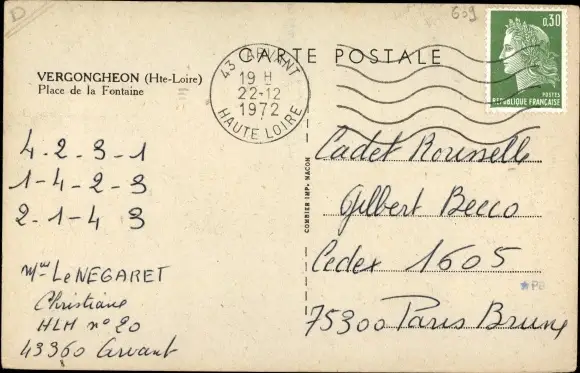 D
609
CARTE POSTALE
0,30
POSTES
RÉPUBLIQUE FRANÇAISE
43 ARVANT
19 H
22-12
1972
HAUTE LOIRE
VERGONGHEON (Hte-Loire)
Place de la Fontaine
4-2-3-1
1-4-2-3
2-1-4-3
Mme LE NEGARET
Christiane
HLM n° 20
43360 Arvant
COMBIER IMP. MACON
Cadet Rousselle
Gilbert Becco
Cedex 1605
PB
75300 Paris Brune